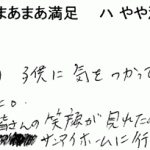 まあまあ満足 ハ やや
) 子供に 気をつかって
と。
皆さんの 笑顔が 見れた
サンマイホームに行